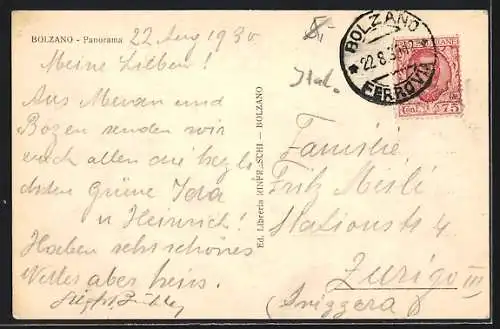 BOLZANO - Panorama
22 Aug 1930
Meine Lieben!
Aus Meran und
Bozen senden wir
euch allen die herzli
chsten Grüsse Ida
u Heinrich!
Haben sehr schönes
Wetter aber heiss.
Ed. Libreria - BOLZANO
Ital.
BOLZANO
22.8.30
FERROVIA
75
Familie
Fritz
Stationsstr 4
Zurigo III
(Svizzera)